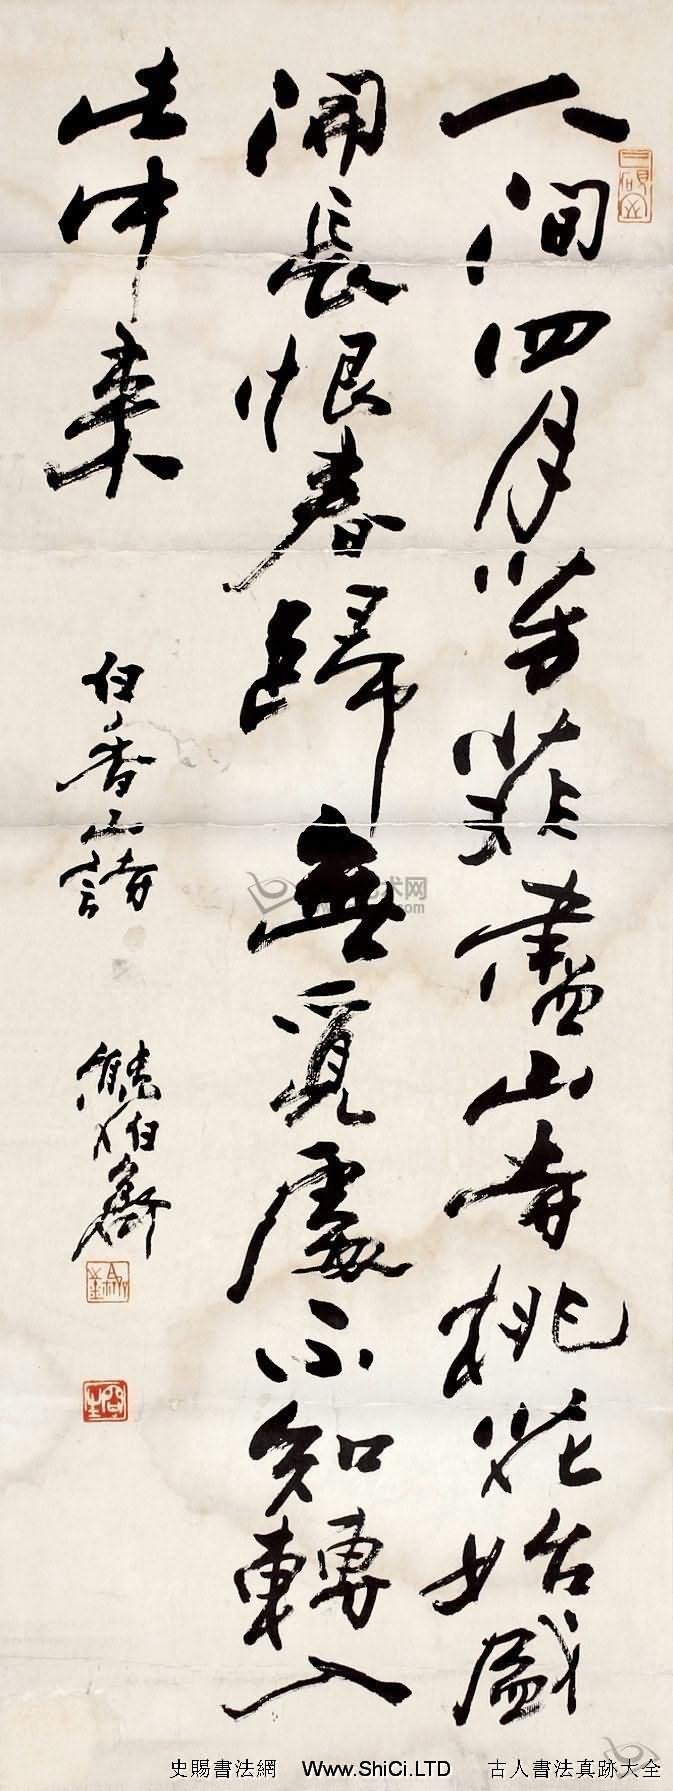 人間四月芳菲盡山寺桃花始盛
開長恨春歸無覓處不知轉入
此中來
白香山詩
熊伯齊
史賜書法網 Www.ShiCi.LTD 古人書法真跡大全